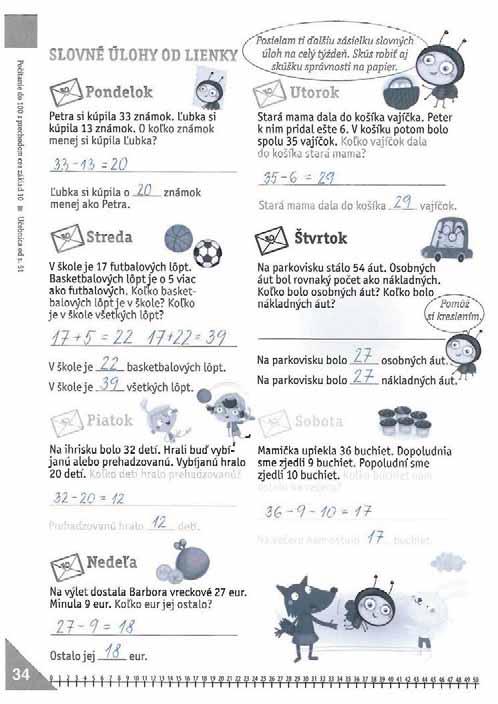 Posielam ti ďalšiu zásielku slovných
úloh na celý týždeň. Skús robiť aj
skúšku správnosti na papier.
SLOVNÉ ÚLOHY OD LIENKY
Počítanie do 100 s prechodom cez základ 10 ■ Učebnica od s. 51
Pondelok
Petra si kúpila 33 známok. Ľubka si
kúpila 13 známok. O koľko známok
menej si kúpila Ľubka?
33-13=20
Ľubka si kúpila o 20 známok
menej ako Petra.
Utorok
Stará mama dala do košíka vajíčka. Peter
k nim pridal ešte 6. V košíku potom bolo
spolu 35 vajíčok. Koľko vajíčok dala
do košíka stará mama?
35-6=29
Stará mama dala do košíka 29 vajíčok.
Streda
V škole je 17 futbalových lôpt.
Basketbalových lôpt je o 5 viac
ako futbalových. Koľko basket-
balových lôpt je v škole? Koľko
je v škole všetkých lôpt?
17+5=22 17+22=39
V škole je 22 basketbalových lôpt.
V škole je 39 všetkých lôpt.
Štvrtok
Na parkovisku stálo 54 áut. Osobných
áut bol rovnaký počet ako nákladných.
Koľko bolo osobných áut? Koľko bolo
nákladných áut?
Pomôž
si kreslením.
Na parkovisku bolo 27 osobných áut.
Na parkovisku bolo 27 nákladných áut.
Piatok
Na ihrisku bolo 32 detí. Hrali buď vybí-
janú alebo prehadzovanú. Vybíjanú hralo
20 detí. Koľko detí hralo prehadzovanú?
32-20=12
Prehadzovanú hralo 12 detí.
Sobota
Mamička upiekla 36 buchiet. Dopoludnia
sme zjedli 9 buchiet. Popoludní sme
zjedli 10 buchiet. Koľko buchiet nám
ostalo na večeru?
36-9-10=17
Na večeru nám ostalo 17 buchiet.
Nedeľa
Na výlet dostala Barbora vreckové 27 eur.
Minula 9 eur. Koľko eur jej ostalo?
27-9=18
Ostalo jej 18 eur.
34
0 1 2 3 4 5 6 7 8 9 10 11 12 13 14 15 16 17 18 19 20 21 22 23 24 25 26 27 28 29 30 31 32 33 34 35 36 37 38 39 40 41 42 43 44 45 46 47 48 49 50